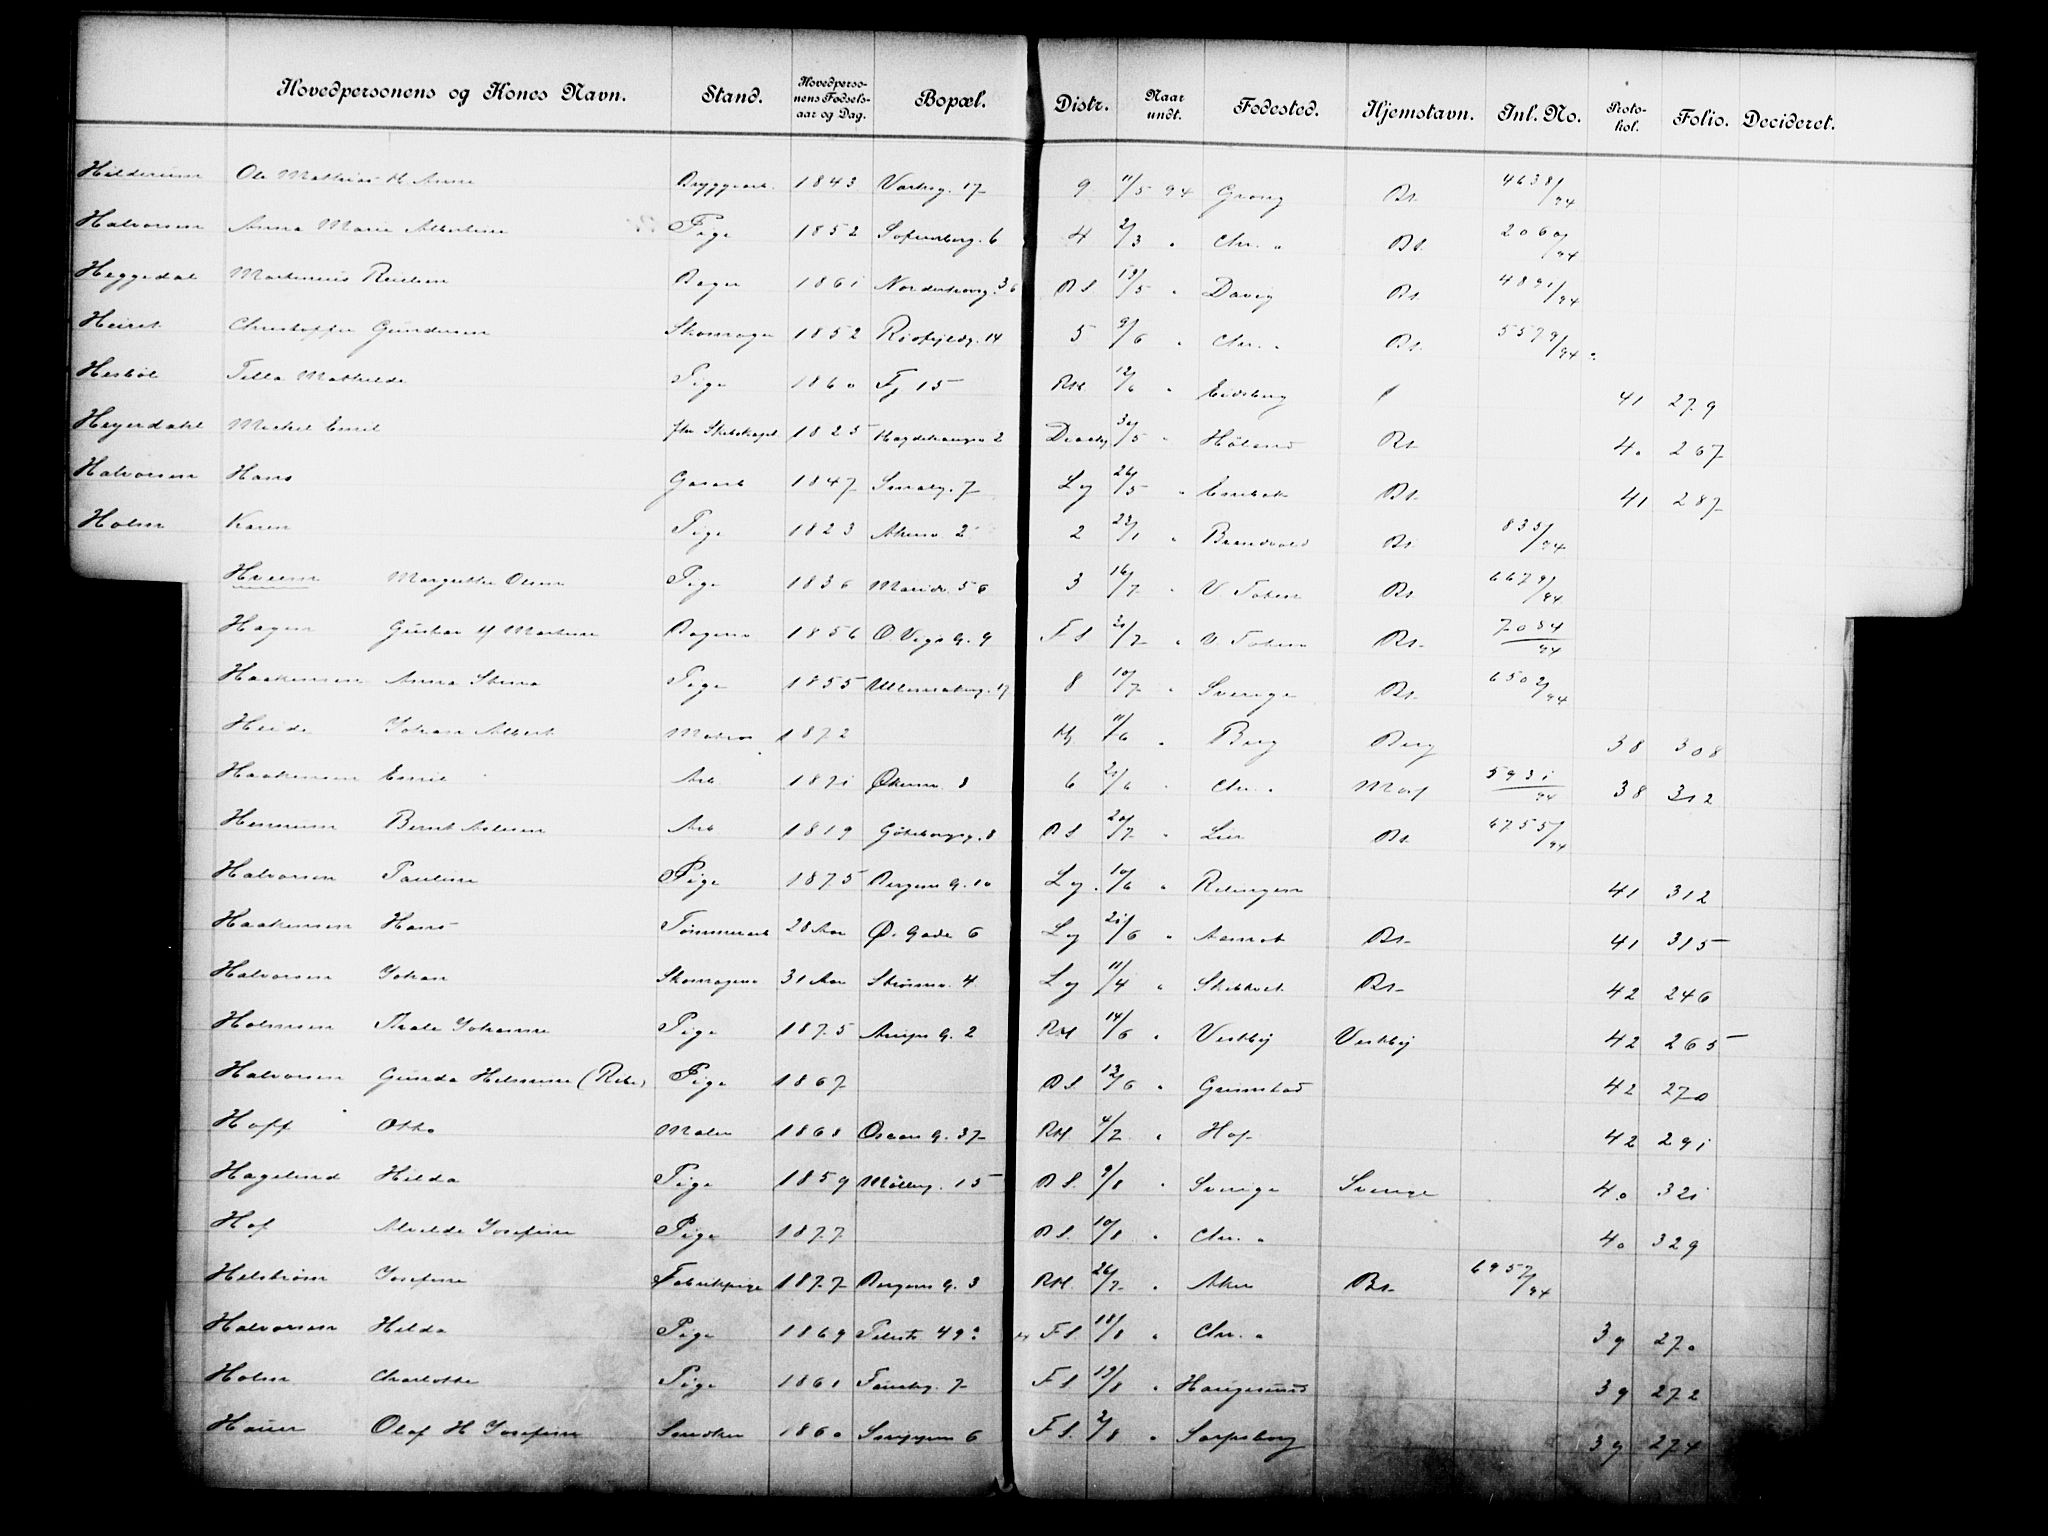 Hovedpersonens og Kones Navn. Stand. Hovedpersonens Fødselsaar og Dag. Bopæl. Distr. Naar undt. Fødested. Hjemstavn. Inl. No. Protokol. Folio. Decideret.
Hilderum Ole Mathias Bryggearb. 1843 Varksg. 17 9 11/5 94 Grong Bt. 4638/94
Halvorsen Anna Marie Albertine Pige 1852 Sofienberg. 6 4 2/3 " Chr. a Bt. 2060/94
Heggedal Martinius Bager 1861 36 B S. 13/5 " Davig Bt. 4891/94
Christoffer Gundersen Skomager 1852 14 5 9/6 " Chr. a Bt. 5579/94
Hesbøl Tella Mathilde Pige 1860 Fj 15 RH. 12/6 " Eidsberg 41 279
Heyerdahl Michel Emil 1825 2 30/5 " Høland Bt 40 267
Halvorsen Hans Gasarb 1847 Smalg. 7 Lg 26/5 " Enebak Bt. 41 287
Holm Karen Pige 1823 Akersv. 2 2 23/1 " Brandvold Bt. 835/94
Hveem Margrethe Olsen Pige 1836 Maridv. 56 3 16/7 " V. Toten Bt. 6679/94
Hagen Gustav Martinius Bagers 1856 O. Vogs G. 9 F S 21/7 " V. Toten Bt. 7084/94
Haakensen Anna Stina Pige 1855 Ullevaalsvg. 17 8 10/7 " Sverige Bt. 6502/94
Heide Johan Albert Matros 1872 11/6 " Berg Berg 38 308
Haakensen Emil Arb. 1871 Økernv. 8 6 21/6 " Chr. a 5931/94 38 312
Henerum Bernt Arb 1819 Gøteborgg. 8 B S 20/7 " Lier Bt. 6755/94
Halvorsen Pauline Pige 1875 Bergens G. 10 Lg. 10/6 " Relingen 41 312
Haakensen Hans Tømmerarb 28 Aar Ø. Gade 6 Lg 21/6 " Aamot Bt. 41 315
Halvorsen Johan Skomagers 31 Aar Strømsv. 4 Lg 11/4 " Skibtvet Bt. 42 246
Holmsen Thale Johanne Pige 1875 G. 2 RH 14/6 " Vestby Vestby 42 265
Halvorsen Gunda Helmine Pige 1867 B S. 12/6 " Grimstad 42 270
Hoff Otto Maler 1868 Oscars G. 37 RH. 4/7 " Hof 42 291
Hagelund Hilda Pige 1859 Møllerg. 15 B S. 9/8 " Sverige Sverige 40 321
Hof Alvilde Josefine Pige 1877 B S. 10/8 " Chr. a 40 329
Helstrøm Josefine Fabrikpige 1877 Bergens G. 3 RH. 26/7 " Aker Bt. 6957/94
Halvorsen Hilda Pige 1869 49 F S. 18/8 " Chr. a 39 270
Holm Charlotte Pige 1861 7 F S 13/8 " Haugesund 39 272
Hauer Olaf H Josefine Snedker 1860 6 F S. 2/8 " Sarpsborg 39 274